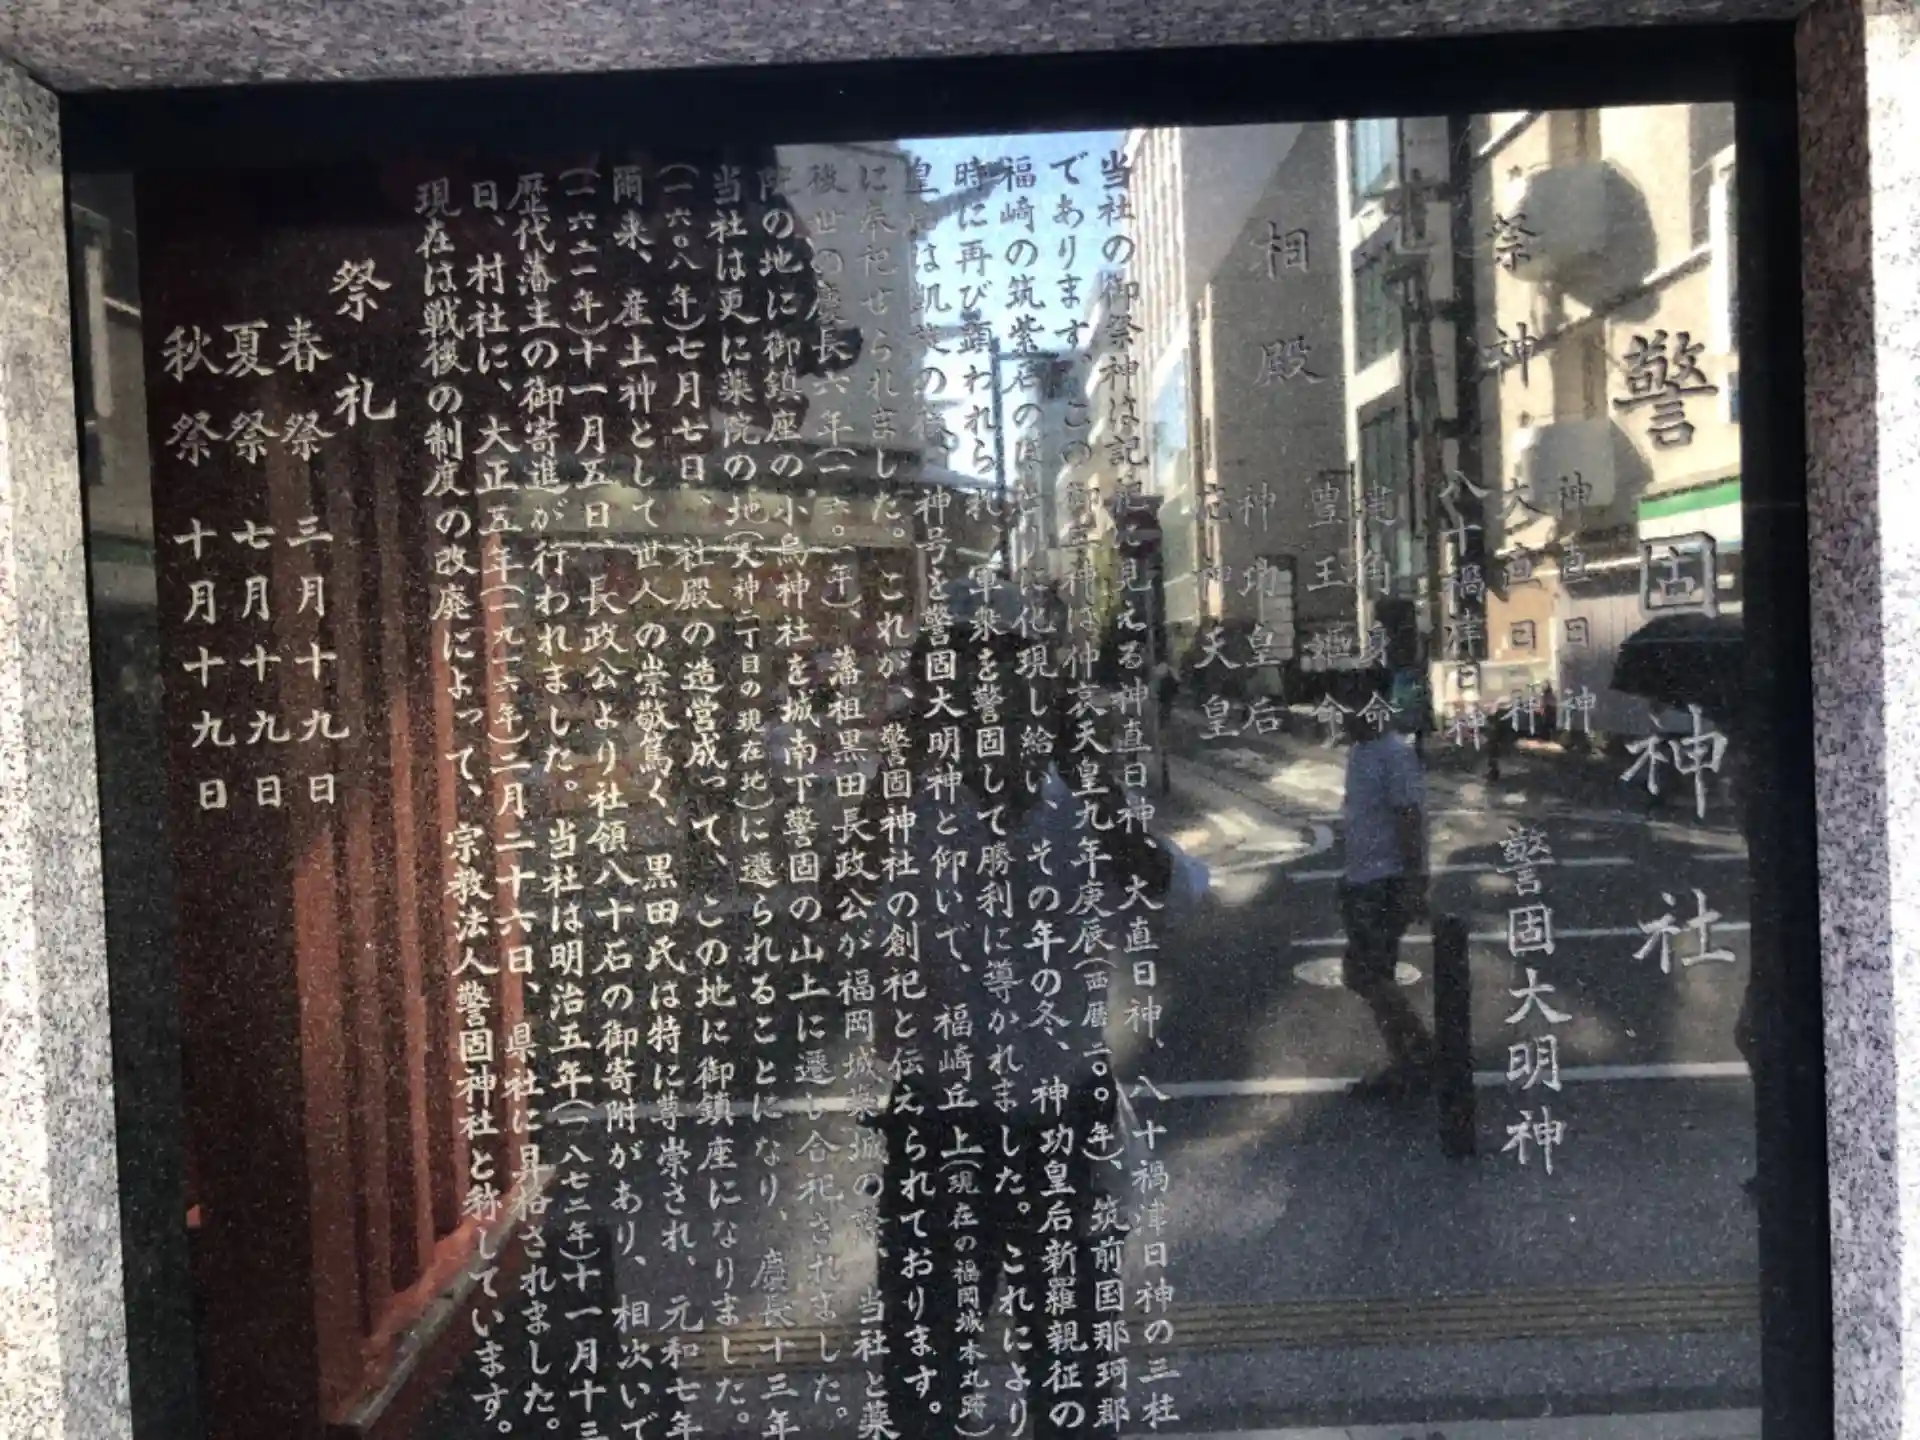 警固神社
警固大明神
祭神
神直日神
大直日神
八十禍津日神
相殿
建角身命
豊玉姫命
神功皇后
応神天皇
当社の御祭神は記紀に見える神直日神、大直日神、八十禍津日神の三柱
であります。この御三神は仲哀天皇九年庚辰（西暦二〇〇年）、筑前国那珂郡
福崎の筑紫石のほとりに化現し給い、その年の冬、神功皇后新羅親征の
時に再び顕われられ、軍衆を警固して勝利に導かれました。これにより
皇后は凱旋の後、神号を警固大明神と仰いで、福崎丘上（現在の福岡城本丸跡）
に奉祀せられました。これが、警固神社の創祀と伝えられております。
後世の慶長六年（一六〇一年）、藩祖黒田長政公が福岡城築城の際、当社と薬
院の地に御鎮座の小烏神社を城南下警固の山上に遷し合祀されました。
当社は更に薬院の地（天神二丁目の現在地）に遷られることになり、慶長十三年
（一六〇八年）七月七日、社殿の造営成って、この地に御鎮座になりました。
爾来、産土神として世人の崇敬篤く、黒田氏は特に尊崇され、元和七年
（一六二一年）十一月五日、長政公より社領八十石の御寄附があり、相次いで
歴代藩主の御寄進が行われました。当社は明治五年（一八七二年）十一月十三
日、村社に、大正五年（一九一六年）二月二十六日、県社に昇格されました。
現在は戦後の制度の改廃によって、宗教法人警固神社と称しています。
祭礼
春祭 三月十九日
夏祭 七月十九日
秋祭 十月十九日